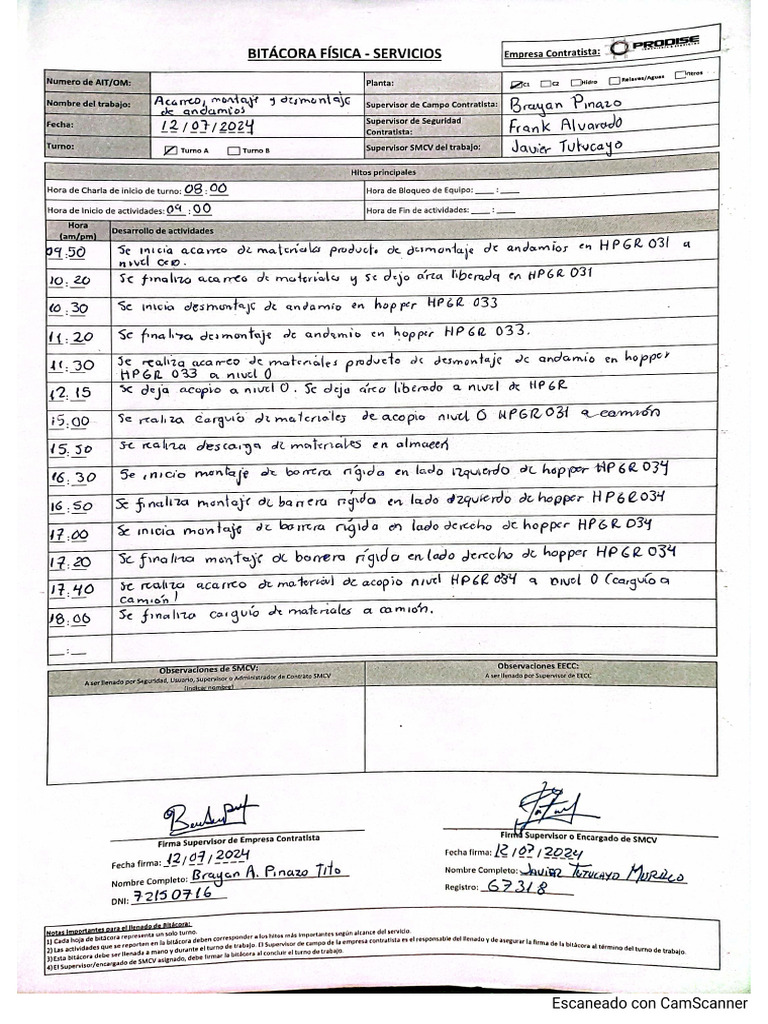 BITÁCORA FÍSICA - SERVICIOS
Empresa Contratista: PRODISE
Numero de AIT/OM:
Planta: C1 C2 Hidro Relaves/Aguas
Nombre del trabajo: Acarreo, montaje y desmontaje
de andamios
Supervisor de Campo Contratista: Brayan Pinazo
Fecha: 12/07/2024
Supervisor de Seguridad
Contratista: Frank Alvarado
Turno: Turno A Turno B
Supervisor SMCV del trabajo: Javier Tutucayo
Hitos principales
Hora de Charla de inicio de turno: 08:00
Hora de Bloqueo de Equipo: __ : __
Hora de Inicio de actividades: 09:00
Hora de Fin de actividades: __ : __
Hora
(am/pm)
Desarrollo de actividades
09:50 Se inicia acarreo de materiales producto de desmontaje de andamios en HPGR 031 a
nivel cero.
10:20 Se finalizo acarreo de materiales y se dejo área liberada en HPGR 031
10:30 Se inicia desmontaje de andamio en hopper HPGR 033
11:20 Se finaliza desmontaje de andamio en hopper HPGR 033.
11:30 Se realiza acarreo de materiales producto de desmontaje de andamio en hopper
HPGR 033 a nivel 0
12:15 Se deja acopio a nivel 0. Se deja área liberado a nivel de HPGR
15:00 Se realiza carguío de materiales de acopio nivel 0 HPGR 031 a camión
15:50 Se realiza descarga de materiales en almacen
16:30 Se inicio montaje de barrera rígida en lado izquierdo de hopper HPGR 034
16:50 Se finaliza montaje de barrera rígida en lado izquierdo de hopper HPGR 034
17:00 Se inicia montaje de barrera rígida en lado derecho de hopper HPGR 034
17:20 Se finaliza montaje de barrera rígida en lado derecho de hopper HPGR 034
17:40 Se realiza acarreo de material de acopio nivel HPGR 034 a nivel 0 (carguío a
camión)
18:00 Se finaliza carguío de materiales a camión.
__:__
Observaciones de SMCV:
A ser llenado por Seguridad, Usuario, Supervisor o Administrador de Contrato SMCV
(Indicar nombre)
Observaciones EECC:
A ser llenado por Supervisor de EECC
Firma Supervisor de Empresa Contratista
Fecha firma: 12/07/2024
Nombre Completo: Brayan A. Pinazo Tito
DNI: 72150716
Firma Supervisor o Encargado de SMCV
Fecha firma: 12/07/2024
Nombre Completo: Javier Tutucayo
Registro: 67318
Notas importantes para el llenado de Bitácora:
1) Cada hoja de bitácora representa un solo turno.
2) Las actividades que se reporten en la bitácora deben corresponder a los hitos más importantes según alcance del servicio.
3) Esta bitácora debe ser llenada a mano y durante el turno de trabajo. El Supervisor de campo de la empresa contratista es el responsable del llenado y de asegurar la firma de la bitácora al término del turno de trabajo.
4) El Supervisor/encargado de SMCV asignado, debe firmar la bitácora al concluir el turno de trabajo.
Escaneado con CamScanner